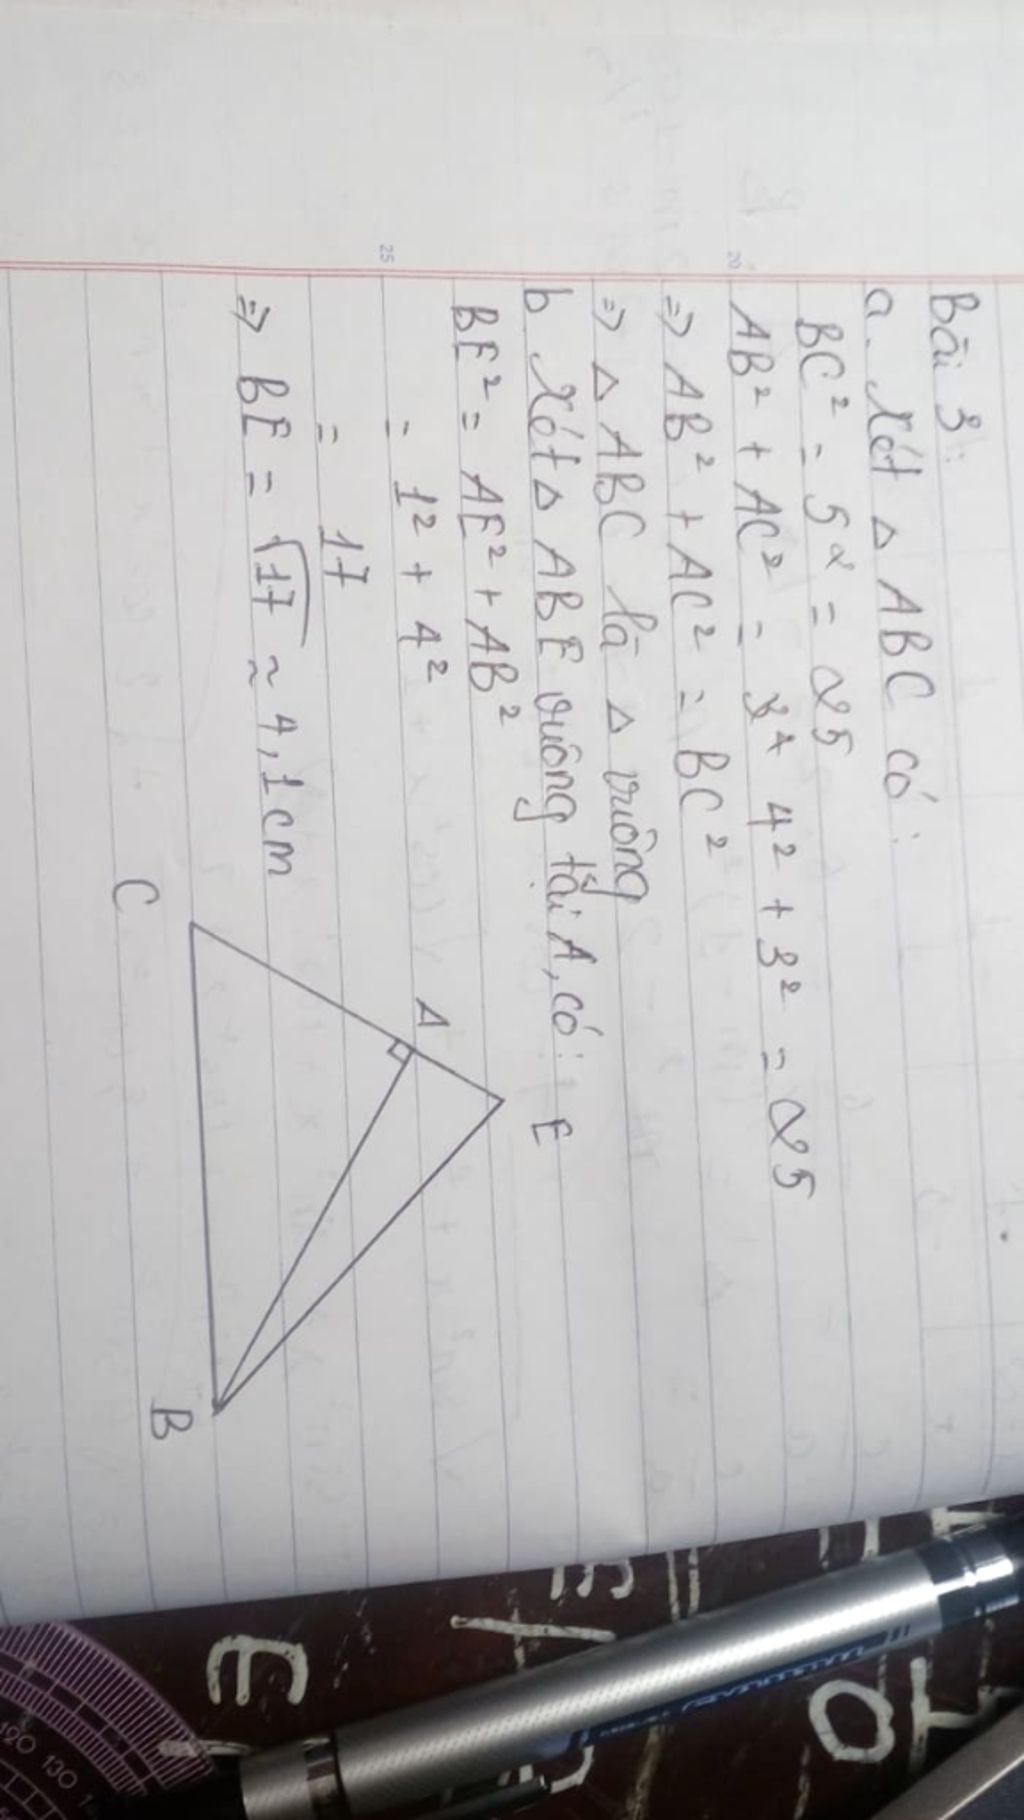 Bài 3:
a. Xét △ ABC có:
BC² = 5² = 25
AB² + AC² = 4² + 3² = 25
⇒ AB² + AC² = BC²
⇒ △ ABC là △ vuông
b Xét △ ABE vuông tại A, có:
BE² = AE² + AB²
= 1² + 4²
= 17
⇒ BE = √17 ≈ 4,1cm
E
A
C
B
20
25
120 130